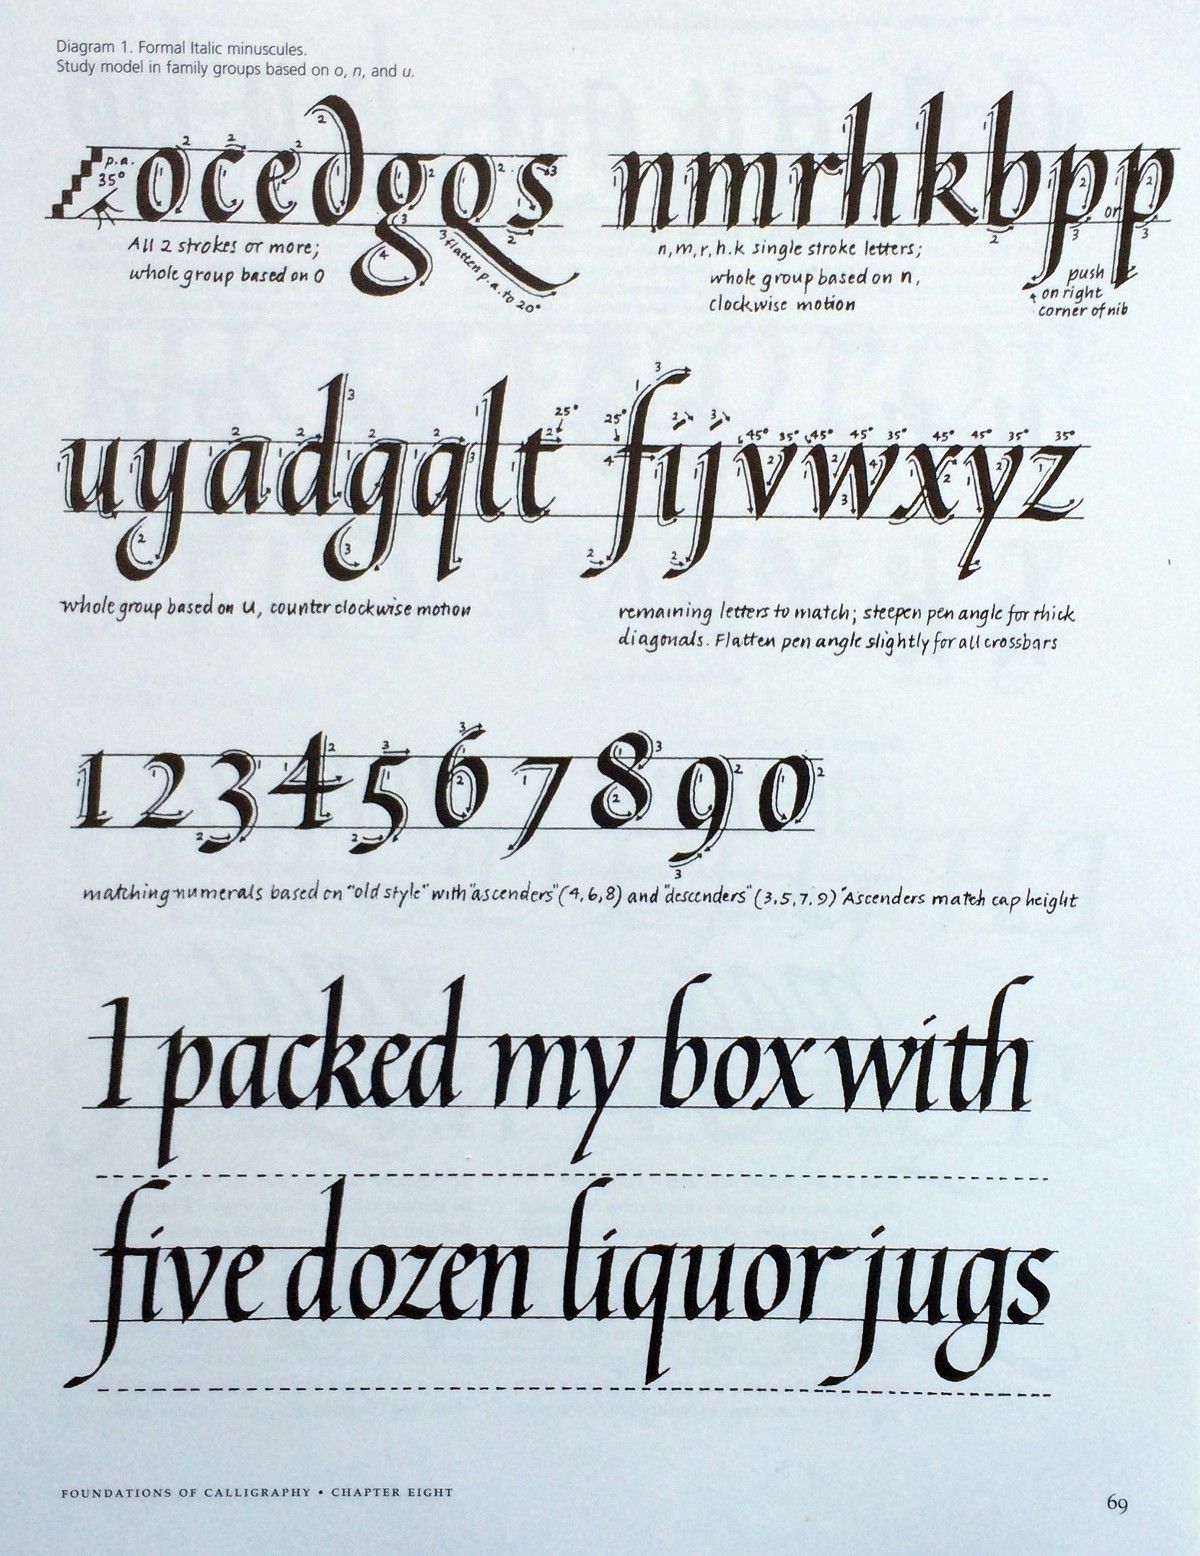 Diagram 1. Formal Italic minuscules.
Study model in family groups based on o, n, and u.
p.a. 35°
ocedgqs nmrhkbpp
or
All 2 strokes or more;
whole group based on o
3 flatten p.a. to 20°
n, m, r, h. k single stroke letters;
whole group based on n,
clockwise motion
push
on right
corner of nib
25° 25° 45° 35° 45° 45° 35° 45° 45° 35° 35°
uyadgqlt fijvwxyz
whole group based on u, counter clockwise motion
remaining letters to match; steepen pen angle for thick
diagonals. Flatten pen angle slightly for all crossbars
1234567890
matching numerals based on "old style" with "ascenders" (4, 6, 8) and "descenders" (3, 5, 7, 9) Ascenders match cap height
I packed my box with
five dozen liquor jugs
FOUNDATIONS OF CALLIGRAPHY • CHAPTER EIGHT
69